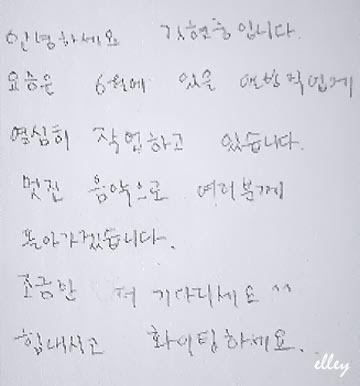 안녕하세요 김현중입니다.
요즘은 6월에 있을 앨범작업에
열심히 작업하고 있습니다.
멋진 음악으로 여러분께
돌아가겠습니다.
조금만 더 기다리세요 ^^
힘내시고 화이팅하세요.
elley